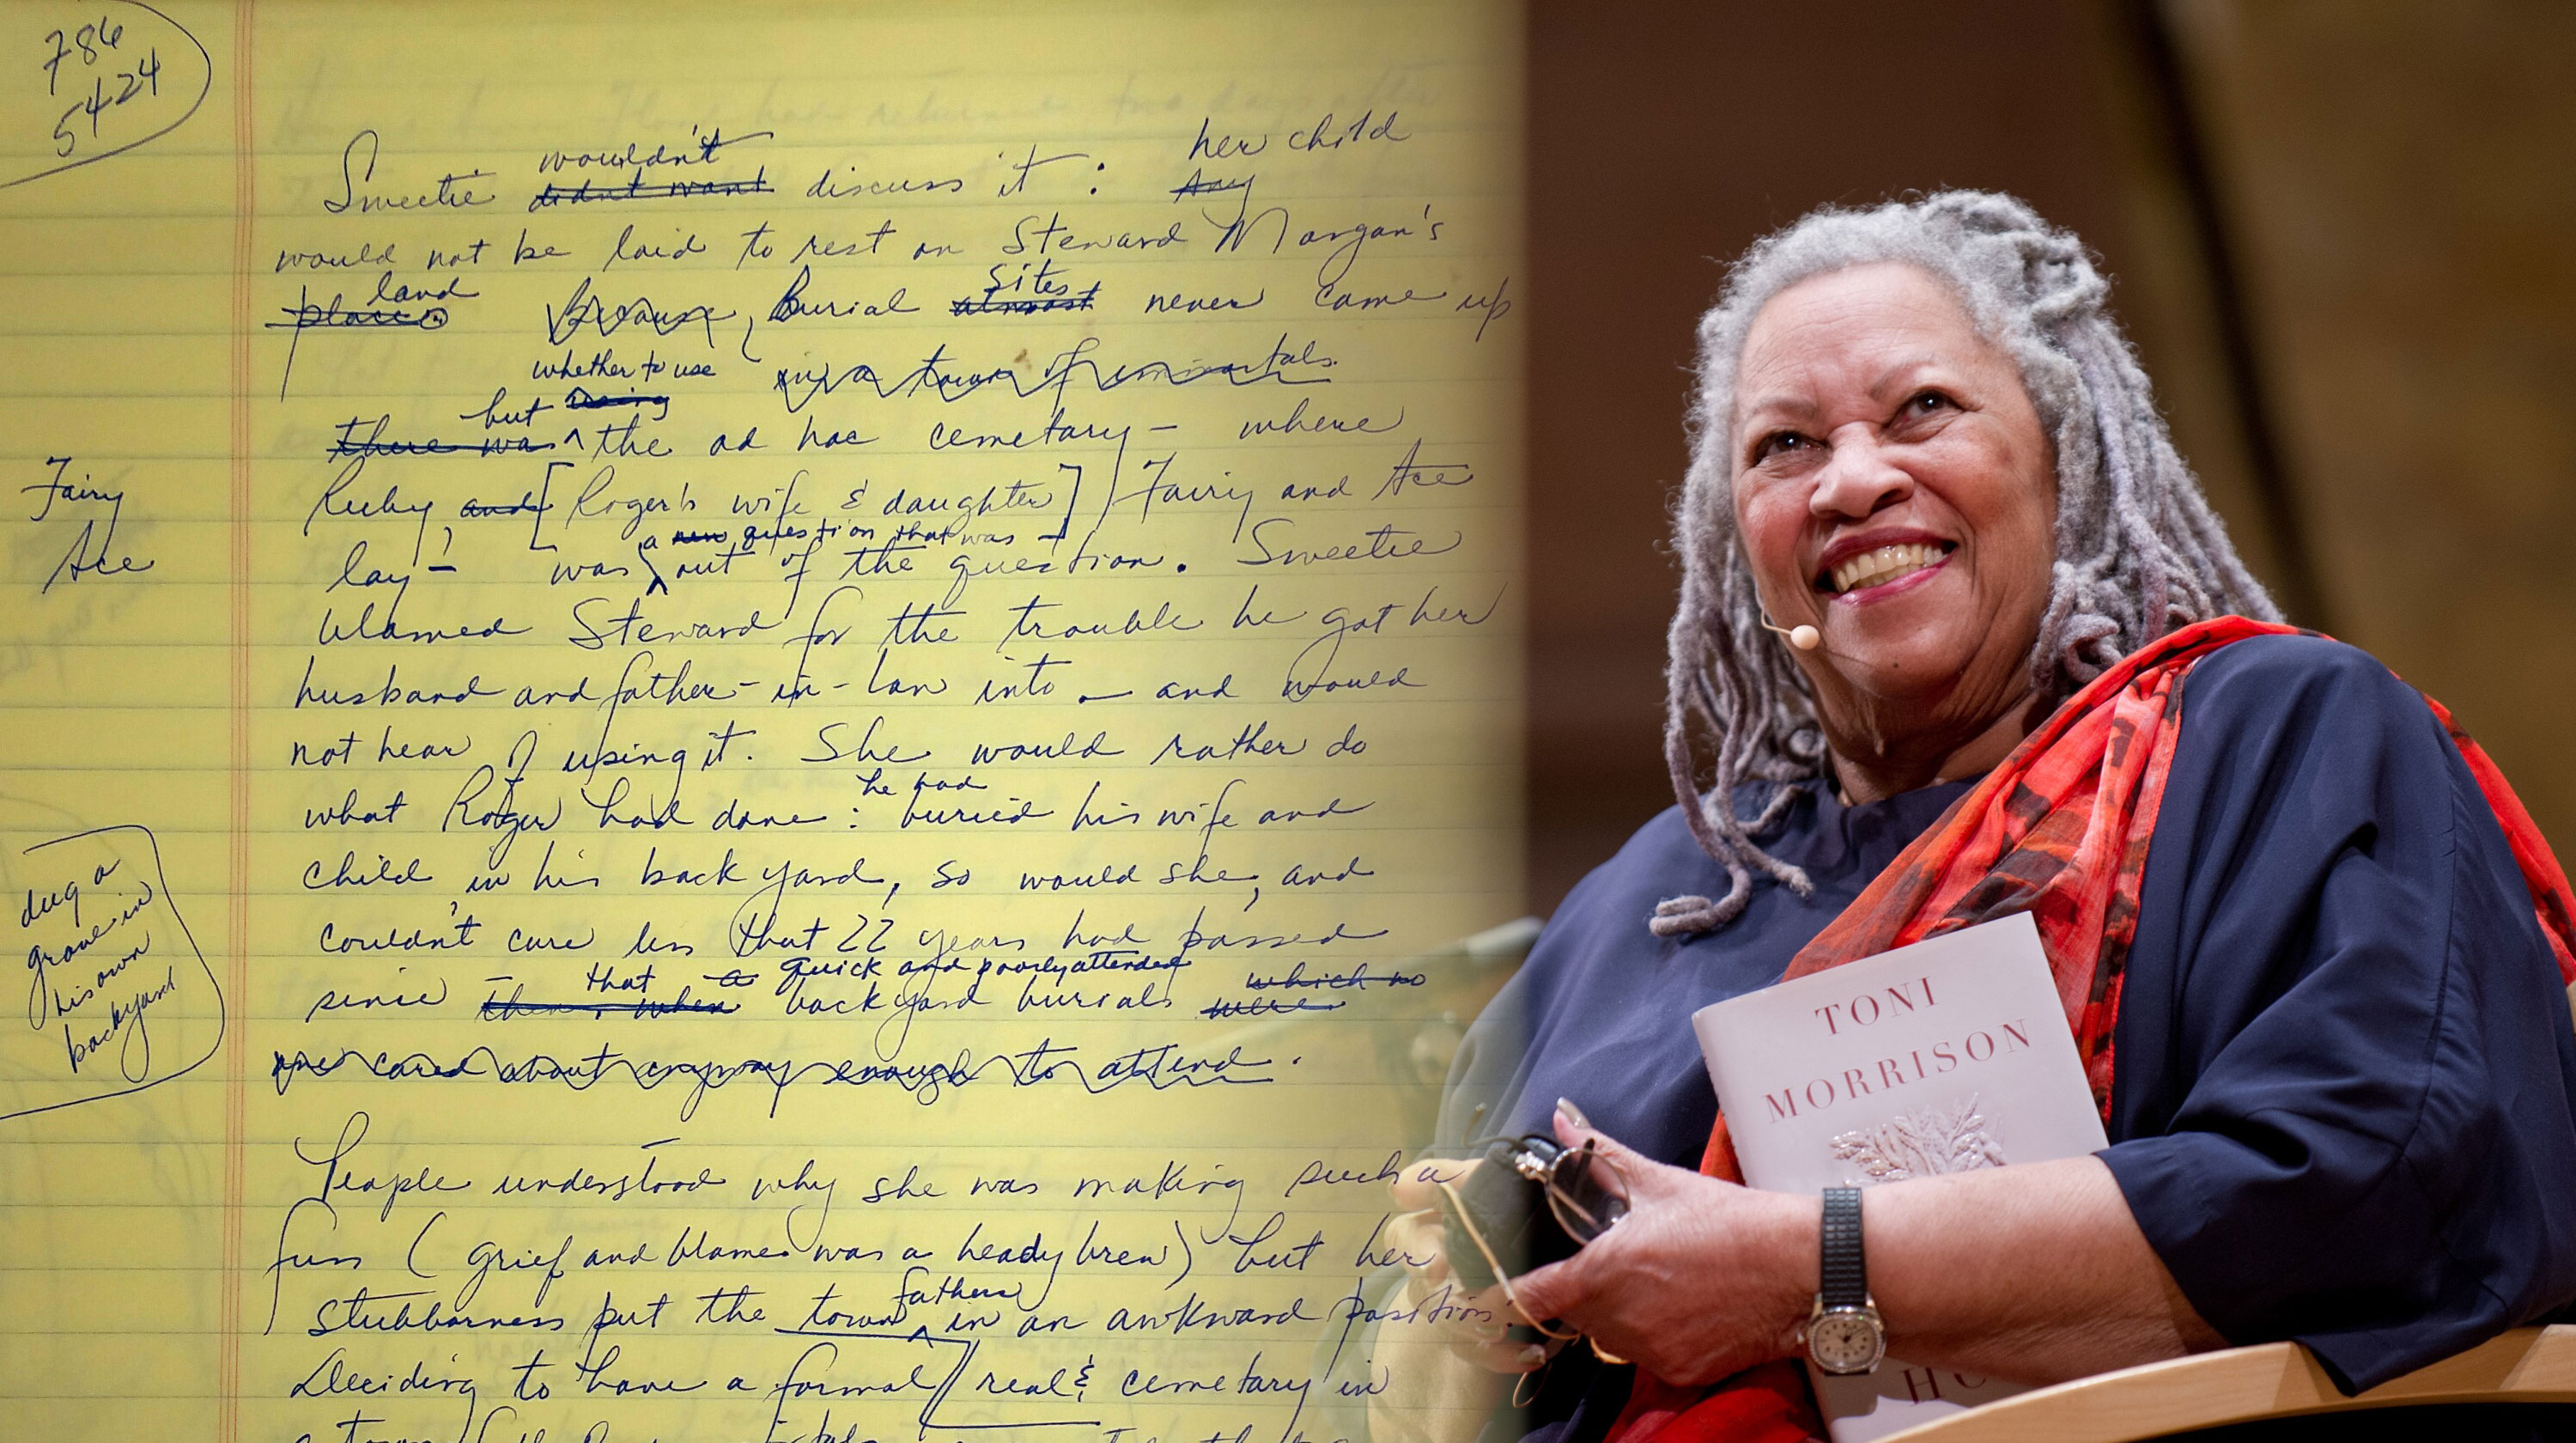 786
5424
wouldn't her child
Sweetie didn't want discuss it : Any
would not be laid to rest on Steward Morgan's
land sites
place Because, Burial almost never came up
whether to use in a town of immortals.
but using
there was ^ the ad hoc cemetary – where
Fairy
Ruby, and [Roger's wife & daughter] Fairy and Ace
a new question that was
Ace
lay – was out of the question. Sweetie
blamed Steward for the trouble he got her
husband and father-in-law into – and would
not hear of using it. She would rather do
he had
what Roger had done : buried his wife and
child, in his back yard, so would she, and
dug a
grave in
his own
backyard
couldn't care less that 22 years had passed
that a quick and poorly attended which no
since then, when backyard burials were
one cared about anyway enough to attend.
People understood why she was making such a
fuss (grief and blame was a heady brew) but her
fathers
stubborness put the town ^ in an awkward position:
Deciding to have a formal / real & cemetary in
TONI
MORRISON
HO